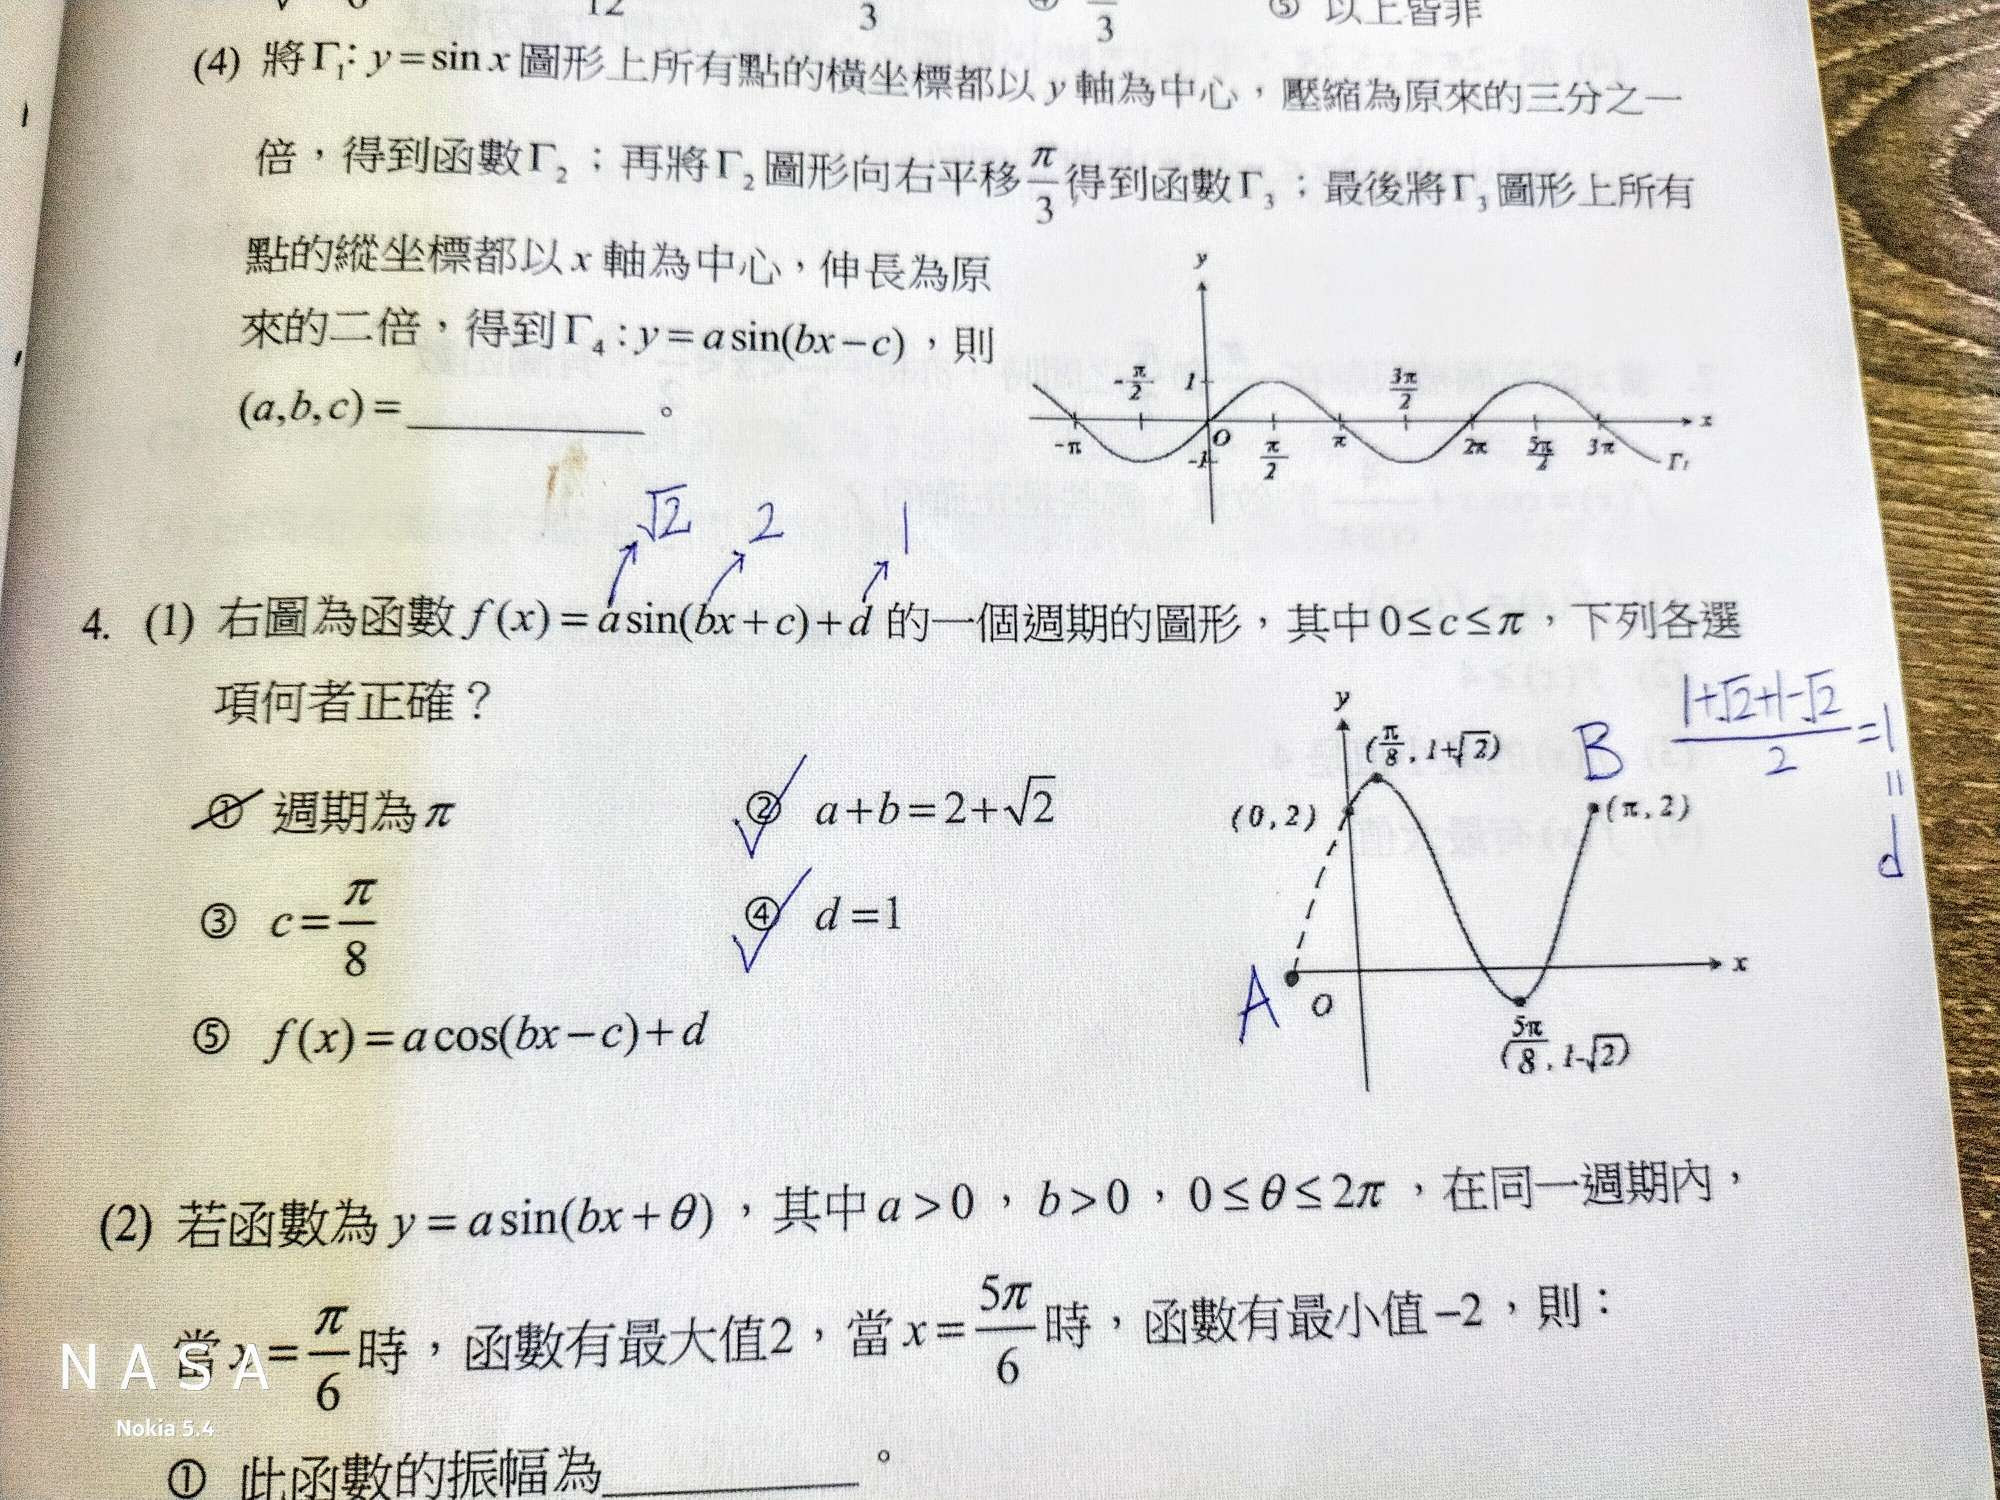 12
3
④ 3
⑤ 以上皆非
(4) 將Γ₁: y=sin x 圖形上所有點的橫坐標都以 y 軸為中心，壓縮為原來的三分之一
倍，得到函數Γ₂；再將Γ₂圖形向右平移π/3,得到函數Γ₃；最後將Γ₃圖形上所有
點的縱坐標都以 x 軸為中心，伸長為原
來的二倍，得到Γ₄:y=a sin(bx−c)，則
(a,b,c)=________。
y
-π/2 1 3π/2
x
-π O π/2 π 2π 5π/2 3π
-1 Γ₁
√2 2 1
4. (1) 右圖為函數 f(x)=a sin(bx+c)+d 的一個週期的圖形，其中 0≤c≤π，下列各選
項何者正確？
① 週期為π
② a+b=2+√2
③ c=π/8
④ d=1
⑤ f(x)=a cos(bx−c)+d
y
(π/8, 1+√2)
B
(1+√2+1-√2)/2 =1
=
d
(0,2)
(π,2)
x
A
O
(5π/8, 1-√2)
(2) 若函數為 y=a sin(bx+θ)，其中 a>0，b>0，0≤θ≤2π，在同一週期內，
當 x=π/6 時，函數有最大值2，當 x=5π/6 時，函數有最小值−2，則：
① 此函數的振幅為________。
NASA
Nokia 5.4